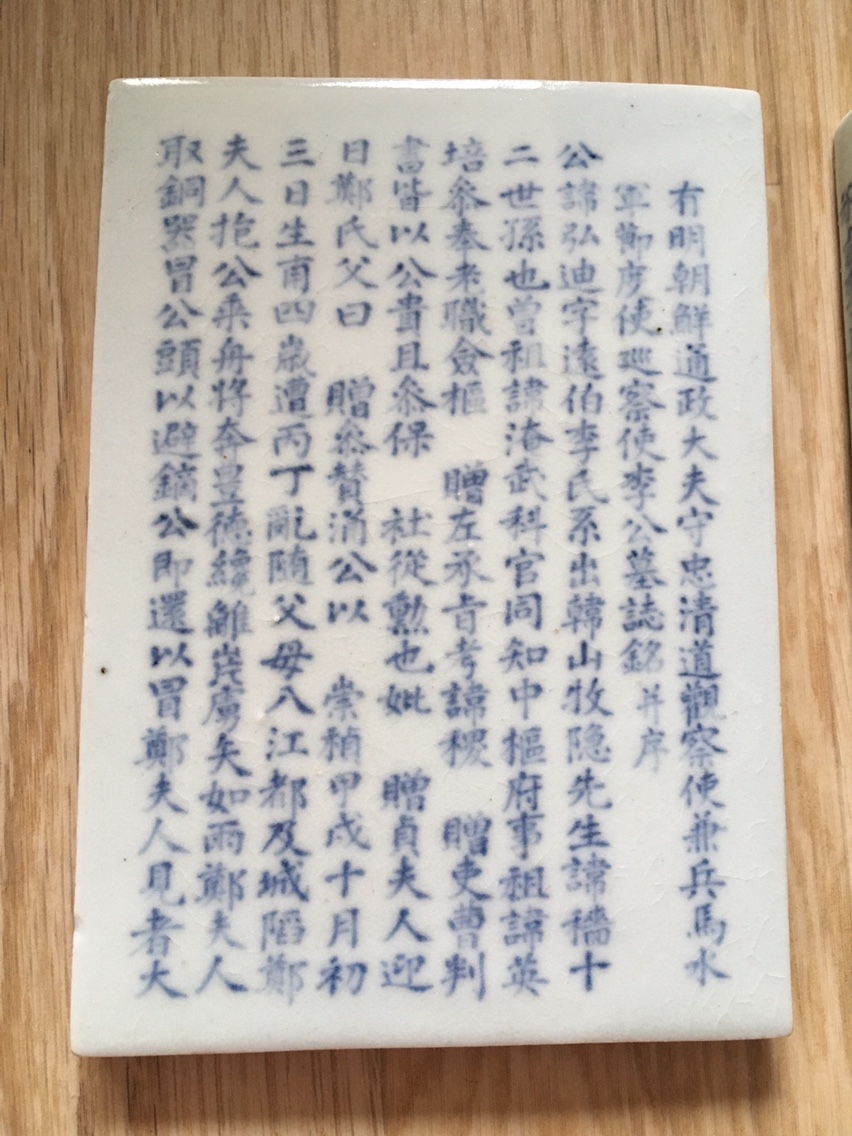 有明朝鮮通政大夫守忠清道觀察使兼兵馬水
軍節度使巡察使李公墓誌銘并序
公諱弘迪字遠伯李氏系出韓山牧隐先生諱穡十
二世孫也曾祖諱淹武科官同知中樞府事祖諱英
培叅奉老職僉樞 贈左承旨考諱稷 贈吏曹判
書皆以公貴且叅保 社從勲也妣 贈貞夫人迎
日鄭氏父曰 贈叅贊涓公以 崇禎甲戌十月初
三日生甫四歳遭丙丁亂随父母入江都及城陷鄭
夫人抱公乘舟將奔豊德纔離崖虜矢如雨鄭夫人
取銅器冒公頭以避鏑公即還以冒鄭夫人見者大